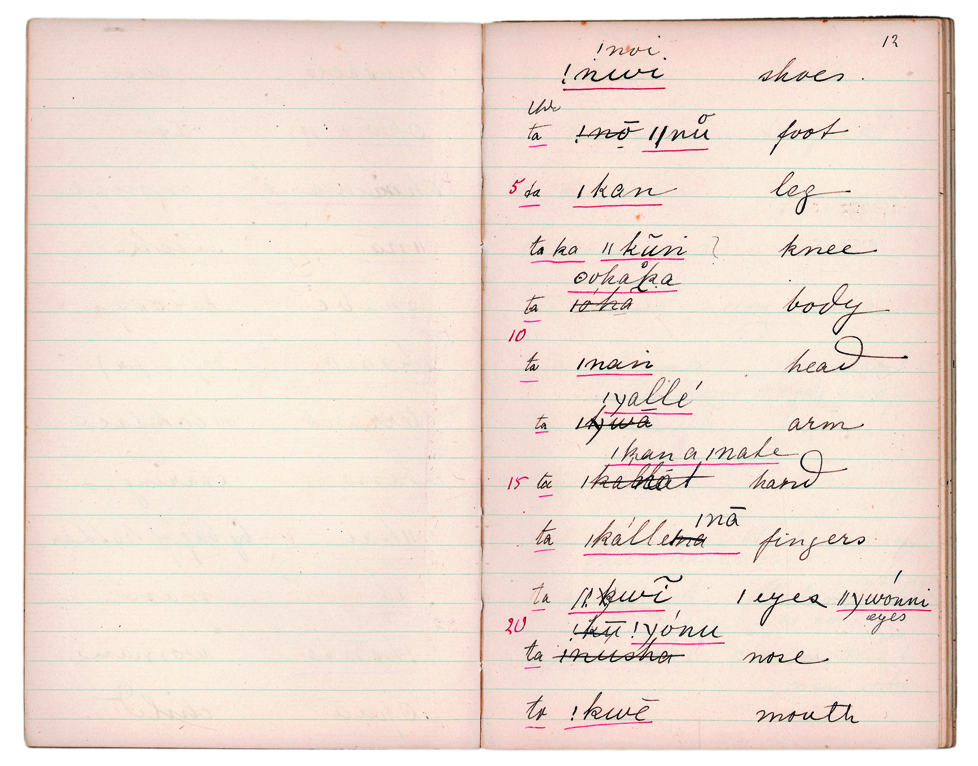 12
!noi
!nwi shoes
ta !nō ǁnů foot
5 ta ǀkan leg
ta ka ǁkūri ? knee
ʘoka̐ka
ta ǀóka body
10
ta ǀnaṅ head
!yallé
ta arm
ǀkan a ǀnate
15 ta hand
ǀnā
ta ǀkállena fingers
ta ǁkwĩ 1 eyes ǁywónni
eyes
20 !kū !yónu
ta !nusha nose
to !kwē mouth